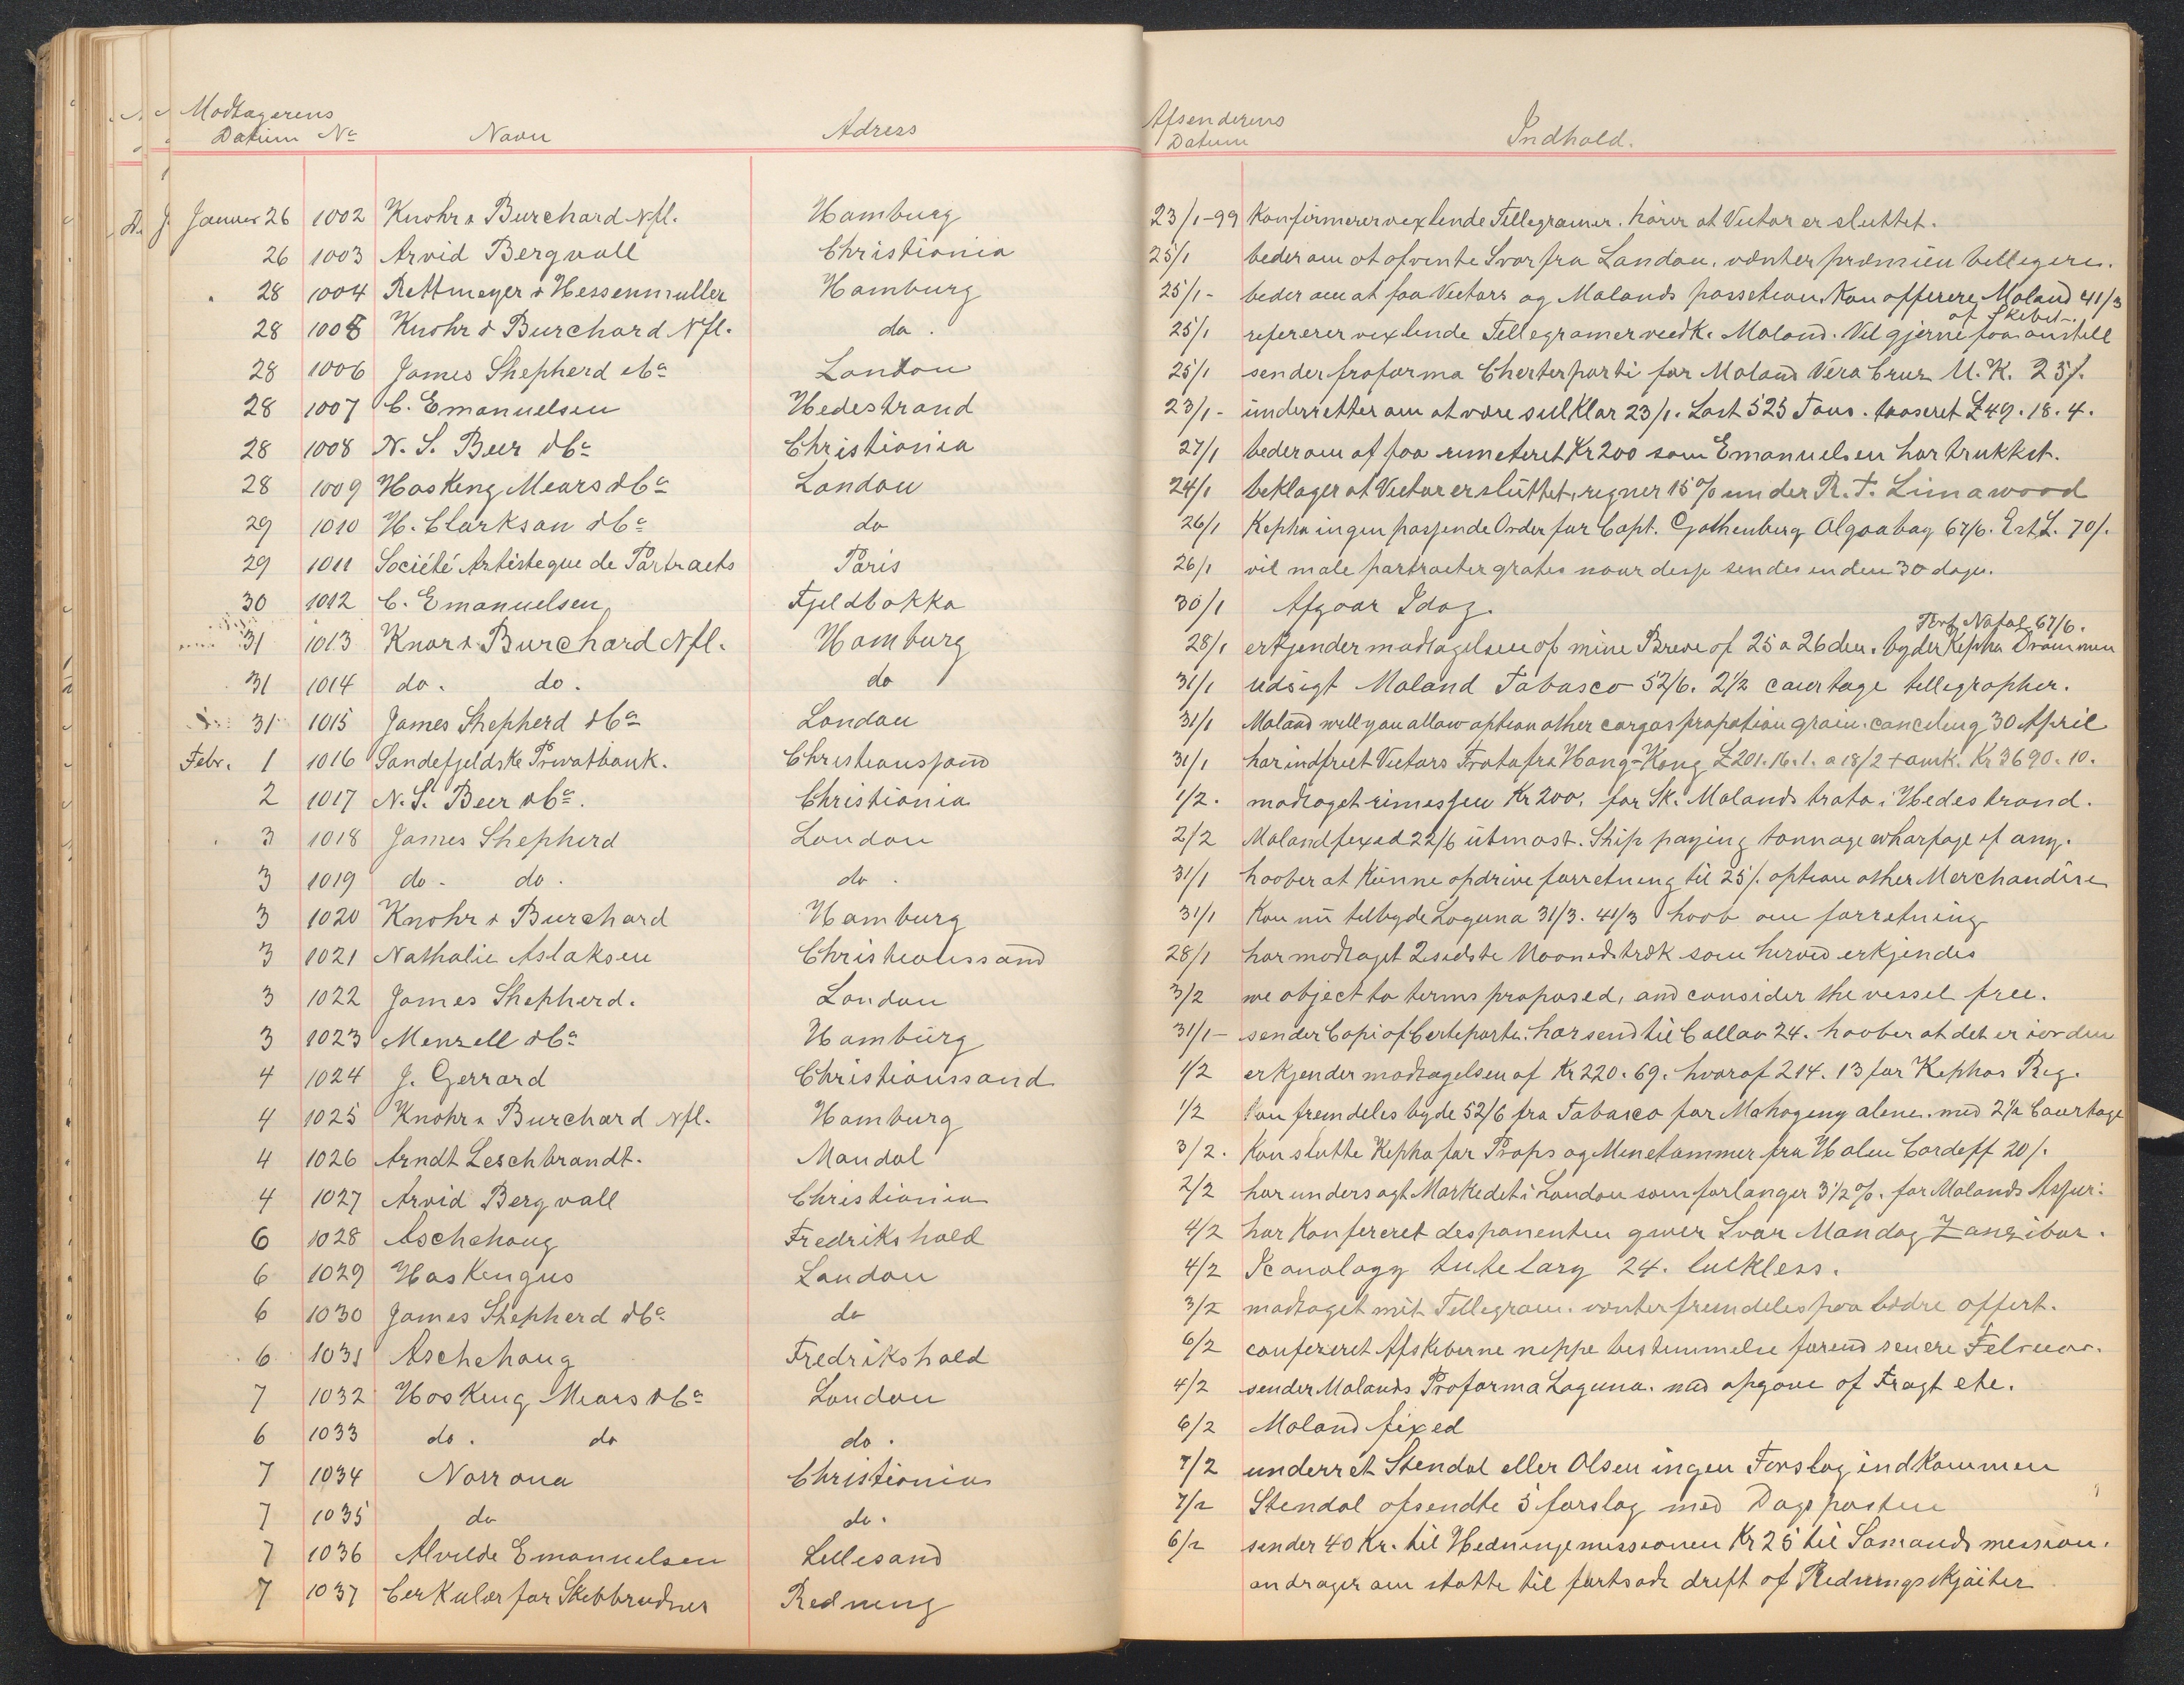 Modtagerens
Datum Nº Navn Adress
Afsenderens
Datum Indhold.
Januar 26 1002 Knohr & Burchard Nfl. Hamburg 23/1-99 Konfirmerer vexlende Tellegramer. hører at Victor er sluttet.
26 1003 Arvid Bergvall Christiania 25/1 beder om at afvente Svar fra London. vænter præmien billigere.
28 1004 Rettmeyer & Hessenmuller Hamburg 25/1- beder om at faa Victors og Molands possetion. Kan offerere Moland 41/3
28 1005 Knohr & Burchard Nfl. do. 25/1 refererer vexlende Tellegramer vedk. Moland. Vil gjerne faa anstell af Skibet.
28 1006 James Shepherd & Cº London 25/1 sender proforma Cherterparti for Moland Vera Cruz U.K. 25/.
28 1007 C. Emanuelsen Hedestrand 23/1- underretter om at være seilKlar 23/1. Last 525 Tons. trasseret £49.18.4.
28 1008 N. S. Beer & Cº Christiania 27/1 beder om at faa rimeteret Kr 200 som Emanuelsen har trukket.
28 1009 Hosking Mears & Cº London 24/1 beklager at Victor er sluttet, regner 15% under R. T. Limawood
29 1010 H. Clarkson & Cº do 26/1 Kepha ingen passende Order for Capt. Gothenburg Algoabay 67/6. Est L. 70/.
29 1011 Société Artisteque de Portraets Paris 26/1 vil male portraeter gratis naar disse sendes inden 30 dage.
30 1012 C. Emanuelsen Fjeldbakka 30/1 Afgaar Idag.
31 1013 Knor & Burchard Nfl. Hamburg 28/1 erkjender modtagelsen af mine Breve af 25 a 26 den. byder Kepha Drammen Port Natal 67/6.
31 1014 do. do. do 31/1 udsigt Moland Tabasco 52/6. 2 1/2 courtage tellegrapher.
31 1015 James Shepherd & Cº London 31/1 Moland will you allow option other cargos propotion grain. canceling 30 April
Febr. 1 1016 Sandefjeldske Privatbank. Christianssand 31/1 har indfriet Victors Trata fra Hong-Kong £201.16.1. a 18/2 + omk. Kr 3690.10.
2 1017 N. S. Beer & Cº. Christiania 1/2. modtaget rimessen Kr 200. for Sk. Molands trata i Hedestrand.
3 1018 James Shepherd London 2/2 Moland fixed 22/6 utmost. Ship paying tonnage wharfage if any.
3 1019 do. do. do. 31/1 haaber at Kunne opdrive forretning til 25/. option other Merchandise
3 1020 Knohr & Burchard Hamburg 31/1 Kan nu tilbyde Laguna 31/3. 41/3 haab om forretning
3 1021 Nathalie Aslaksen Christianssand 28/1 har modtaget 2 sidste Maanedstræk som herved erkjendes
3 1022 James Shepherd. London 3/2 we object to terms proposed, and consider the vessel free.
3 1023 Menzell & Cº Hamburg 31/1- sender Copi af Certeparti. har send til Callao 24. haaber at det er iorden
4 1024 J. Gerrard Christianssand 1/2 erkjender modtagelsen af Kr 220.69. hvoraf 214.13 for Kephas Reg.
4 1025 Knohr & Burchard Nfl. Hamburg 1/2 kan fremdeles byde 52/6 fra Tabasco for Mahogeny alene. med 2 1/2 Courtage
4 1026 Arndt Leschbrandt. Mandal 3/2. Kan slutte Kepha for Props og Minetømmer fra Halen Cardeff 20/.
4 1027 Arvid Bergvall Christiania 2/2 har undersøgt Markedet i London som forlanger 3 1/2 %. for Molands Assur:
6 1028 Aschehoug Fredrikshald 4/2 har Konfereret desponenten giver Svar Mandag Zanzibar.
6 1029 Haskengus London 4/2 Iconology tutelary 24. luckless.
6 1030 James Shepherd & Cº do 3/2 modtaget mit Tellegram. venter fremdeles paa bedre offert.
6 1031 Aschehoug Fredrikshald 6/2 confereret Afskiberne neppe bestemmelse førend senere Februar.
7 1032 Hosking Mears & Cº London 4/2 sender Molands Proforma Laguna. med opgave af Fragt etc.
6 1033 do. do do. 6/2 Moland fixed
7 1034 Norrona Christiania 7/2 underret Stendal eller Olsen ingen Forslag indkommen
7 1035 do do. 7/2 Stendal afsendte 5 forslag med Dagsposten
7 1036 Alvilde Emanuelsen Lillesand 6/2 sender 40 Kr. til Hedningemissionen Kr 25 til Sømands mession.
7 1037 Cerkulær for Skibbrudnes Redning andrager om støtte til fortsadt drift af Redningsskjøiter